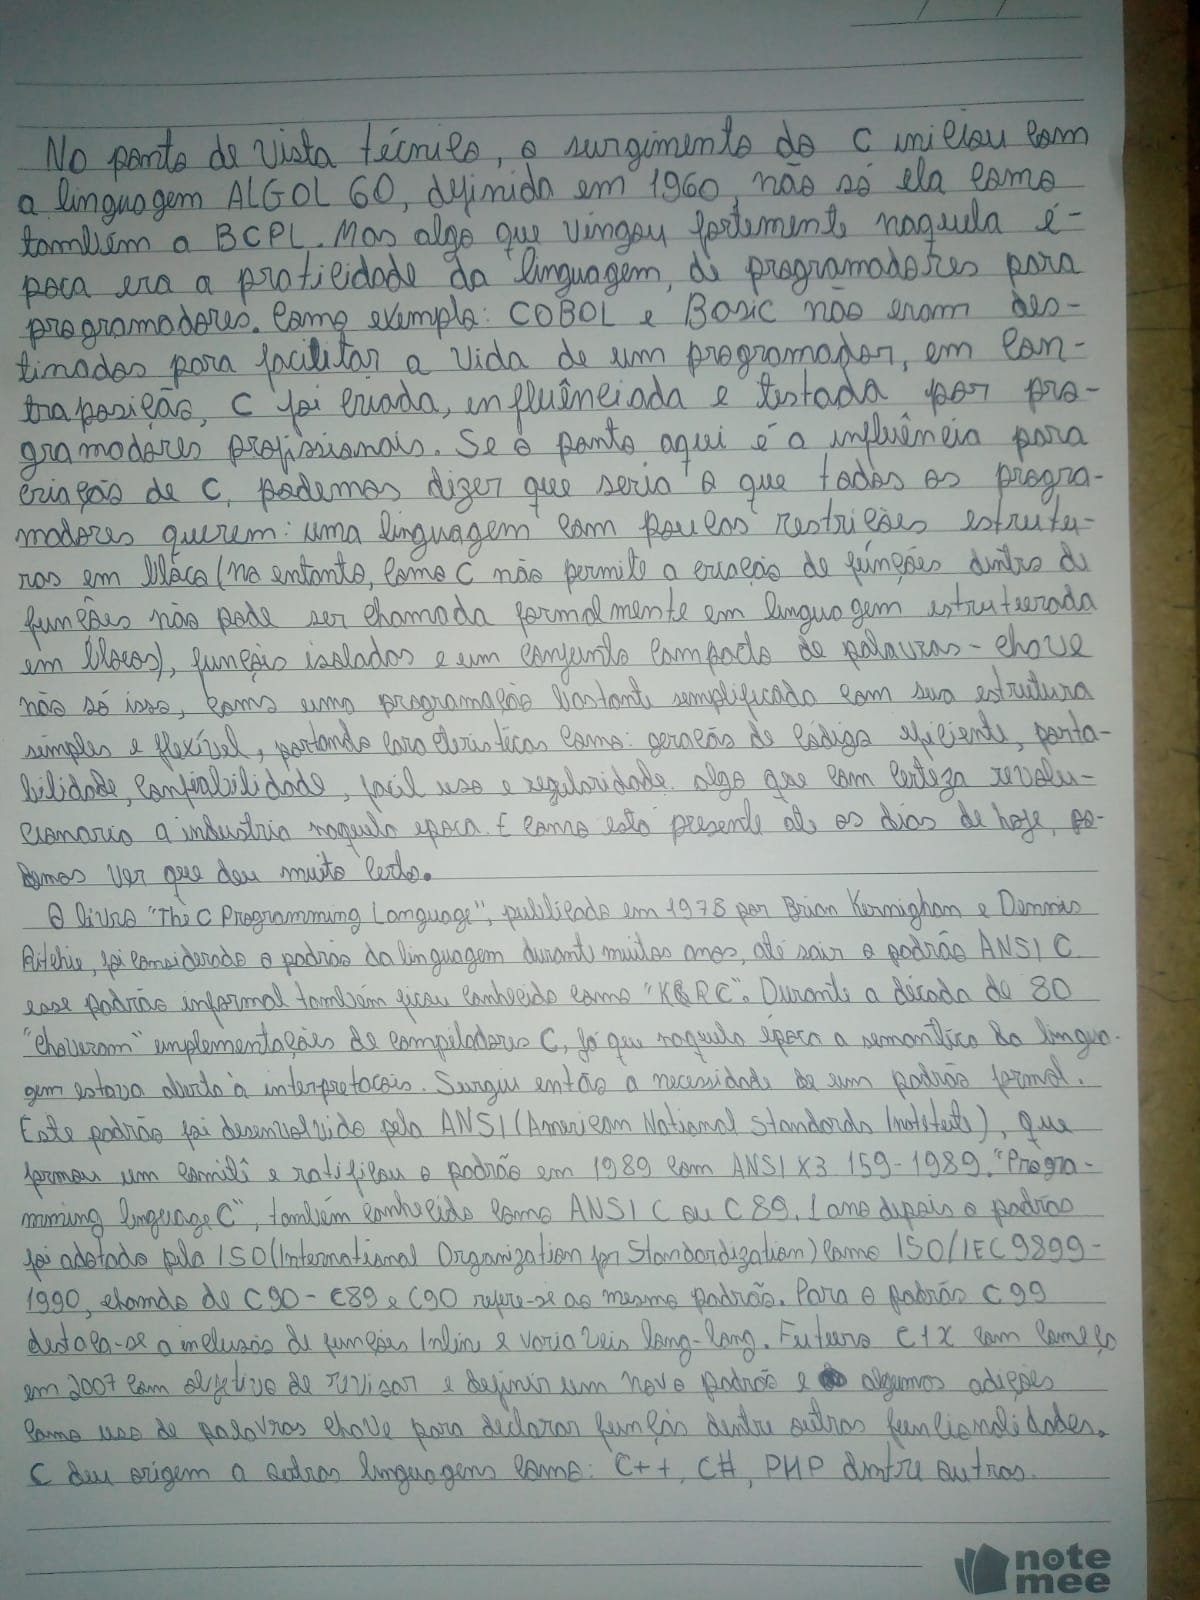 No ponto de vista técnico, o surgimento do C iniciou com
a linguagem ALGOL 60, definida em 1960, não só ela como
também a BCPL. Mas algo que vingou fortemente naquela é-
poca era a praticidade da linguagem, de programadores para
programadores. Como exemplo: COBOL e Basic não eram des-
tinados para facilitar a vida de um programador, em con-
traposição, C foi criada, influênciada e testada por pro-
gramadores profissionais. Se o ponto aqui é a influência para
criação de C, podemos dizer que seria o que todos os progra-
madores querem: uma linguagem com poucas restrições estrutu-
ras em bloco (no entanto, como C não permite a criação de funções dintro de
funções não pode ser chamada formalmente em linguagem estruturada
em blocos), funções isolados e um conjunto compacto de palavras-chave
não só isso, como uma programação bastante semplificada com sua estrutura
simples e flexível, portando características como: geração de código eficiente, porta-
bilidade, confiabilidade, facil uso e regularidade. algo que com certeza revolu-
cionaria a industria naquela epoca. E como esta presente até os dias de hoje, po-
demos ver que deu muito certo.
O livro "The C Programming Language", publicado em 1978 por Brian Kernighan e Dennis
Ritchie, foi considerado o padrão da linguagem durante muitos anos, até sair o padrão ANSI C.
esse padrão informal também ficou conhecido como "K&R C". Durante a década de 80
"choveram" implementações de compiladores C, já que naquela época a semantica da lingua-
gem estava aberta à interpretacois. Surgiu então a necessidade de um padrão formal.
Este padrão foi desenvolvido pelo ANSI (American National Standards Institute), que
formou um comitê e ratificou o padrão em 1989 com ANSI X3 159-1989. "Progra-
mming linguage C", também conhecido como ANSI C ou C 89. 1 ano depois o padrão
foi adotado pela ISO (International Organization for Standardization) como ISO/IEC 9899-
1990, chamdo de C90 - C89 e C90 refere-se ao mesmo padrão. Para o padrão C99
destaca-se a inclusão de funções Inline e variaveis long-long. Futuro C1X com começo
em 2007 com objetivo de revisar e definir um novo padrão e algumas adições
como uso de palavras chave para declarar função dentre outras funcionalidades.
C deu origem a outras linguagens como: C++, C#, PHP dentre outras.
note
mee